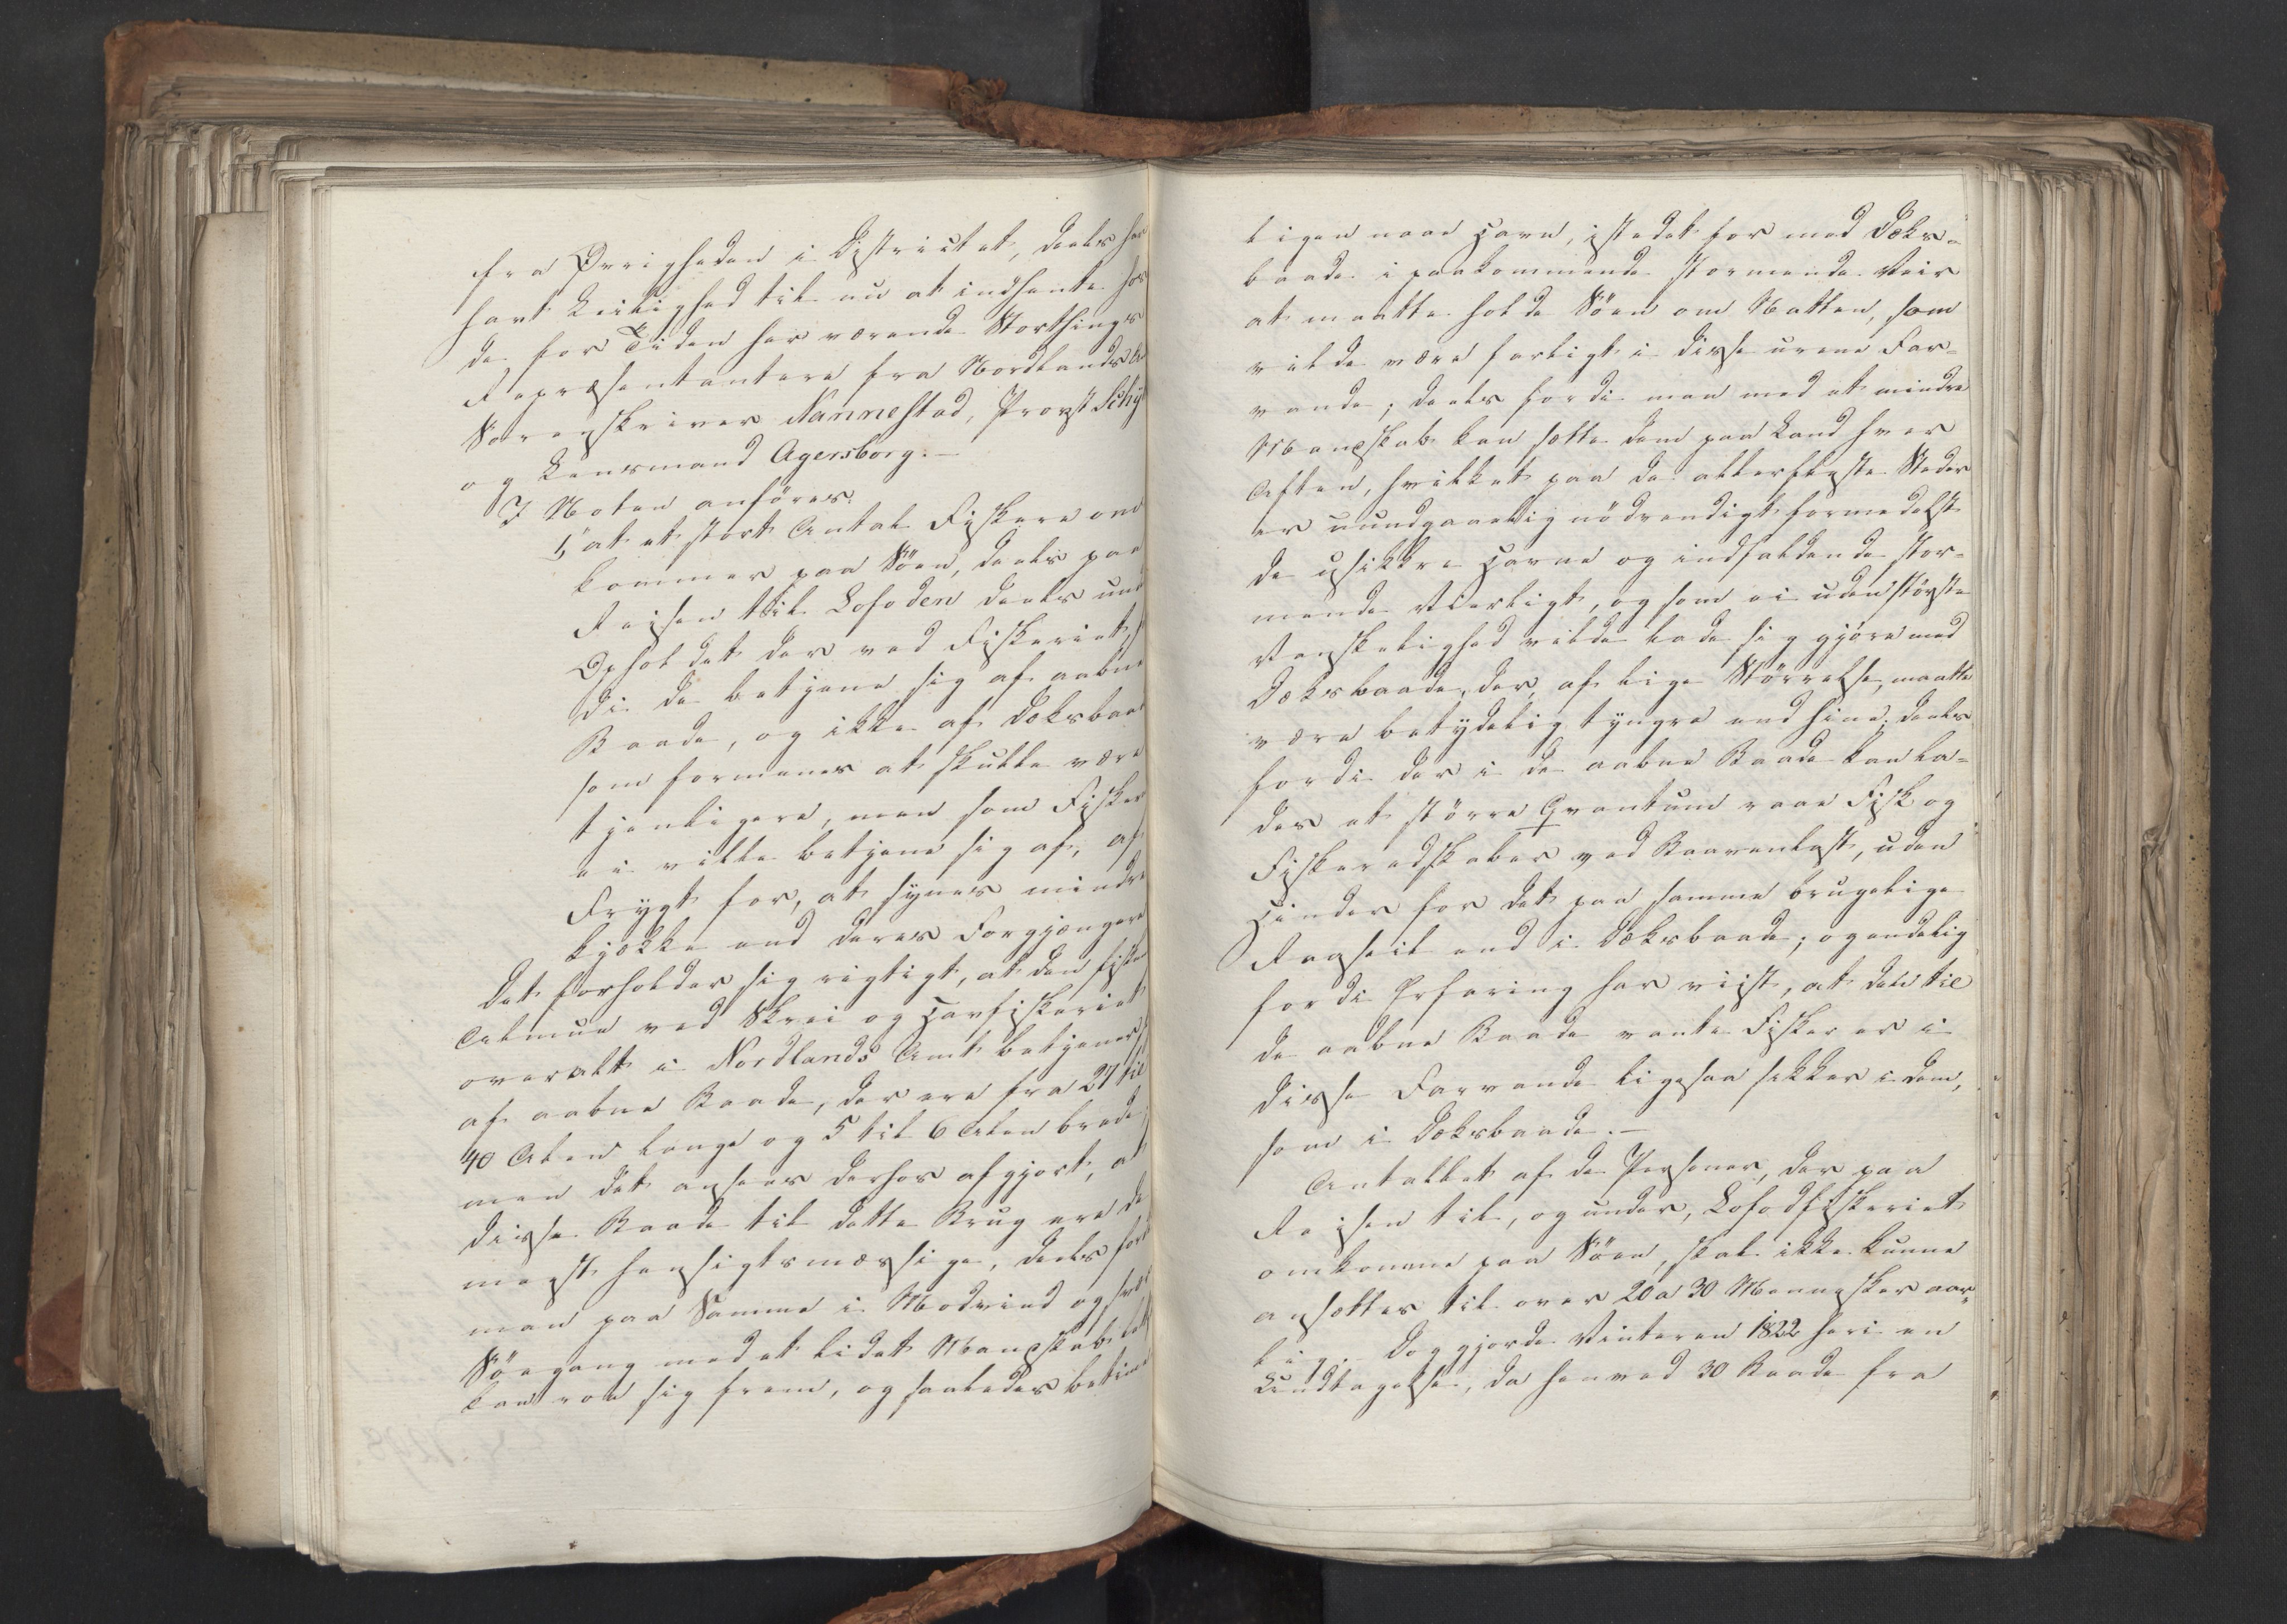 fra Øvrigheden i Districtet, deels har
havt Leilighed til nu at indhente hos
de for Tiden her værende Storthings
Repræsentantere fra Nordlands A
Sorenskriver Nannestad, Provst Schy
og Lensmand Agersborg. —
I Noten anföres:
1, at et stort Antal Fiskere om
kommer paa Söen, deels paa
Reisen til Lofoden deels und
Opholdet der ved Fiskeriet,
di de betjene sig af aabne
Baade, og ikke af Dæksbaad
som formenes at skulle være
tjenligere, men som Fisker
ei ville betjene sig af, af
Frygt for, at synes mindre
kjække end deres Forgjængere
Det forholder sig rigtigt, at den fiske
Almue ved Skrei og Havfiskeriet
overalt i Nordlands Amt betjener s
af aabne Baade, der ere fra 27 til
40 Alen lange og 5 til 6 Alen brede;
men det ansees derhos afgjort, at
disse Baade til dette Brug ere de
meest hensigtsmæssige, deels fordi
man paa Samme i Modvind og svær
Söegang med et lidet Mandskab let
kan roe sig frem, og saaledes betime
ligen naae Havn, istedet for med Dæks-
baade i paakommende stormende Veir
at maatte holde Söen om Natten, som
vilde være farligt i disse urene Far-
vande; deels fordi man med et mindre
Mandskab kan sætte dem paa Land hver
Aften, hvilket paa de allerfleste Steder
er uundgaaelig nödvendigt formedelst
de usikkre Havne og indfaldende stor-
mende Veirligt, og som ei uden störste
Vanskelighed vilde lade sig gjöre med
Dæksbaade, der, af lige Störrelse, maatte
være betydelig tyngre end hine; deels
fordi der i de aabne Baade kan la-
des et större Qvantum raae Fisk og
Fiskeredskaber ved Baarenlast, uden
Hinder for det paa samme brugelige
Raaseil end i Dæksbaade; og endelig
fordi Erfaring har viist, at den til
de aabne Baade vante Fisker er i
disse Farvande ligesaa sikker i dem,
som i Dæksbaade. —
Antallet af de Personer, der paa
Reisen til, og under, Lofodfiskeriet
omkomme paa Söen, skal ikke kunne
ansættes til over 20 a 30 Mennesker aar-
lig. — Dog gjorde Vinteren 1822 heri en
Undtagelse, da henved 30 Baade fra